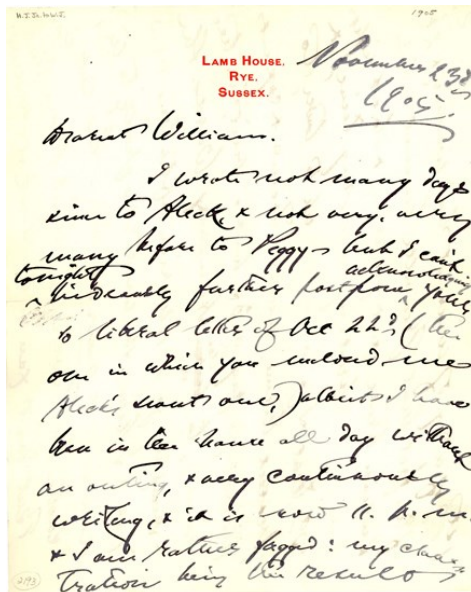 H.J. to W.J.
1905
LAMB HOUSE,
RYE,
SUSSEX.
November 23d
1905.
Dearest William.
I wrote not many days
since to Aleck & not very, very
many before to Peggy – but I can't
tonight hideously further postpone acknowledging your
so liberal letter of Oct 22d (the
one in which you enclosed me
Aleck's sweet one,) albeit I have
been in the house all day without
an outing, & very continuously
writing, & it is now 11. p.m.
& I am rather fagged: my
tration being the result
2193